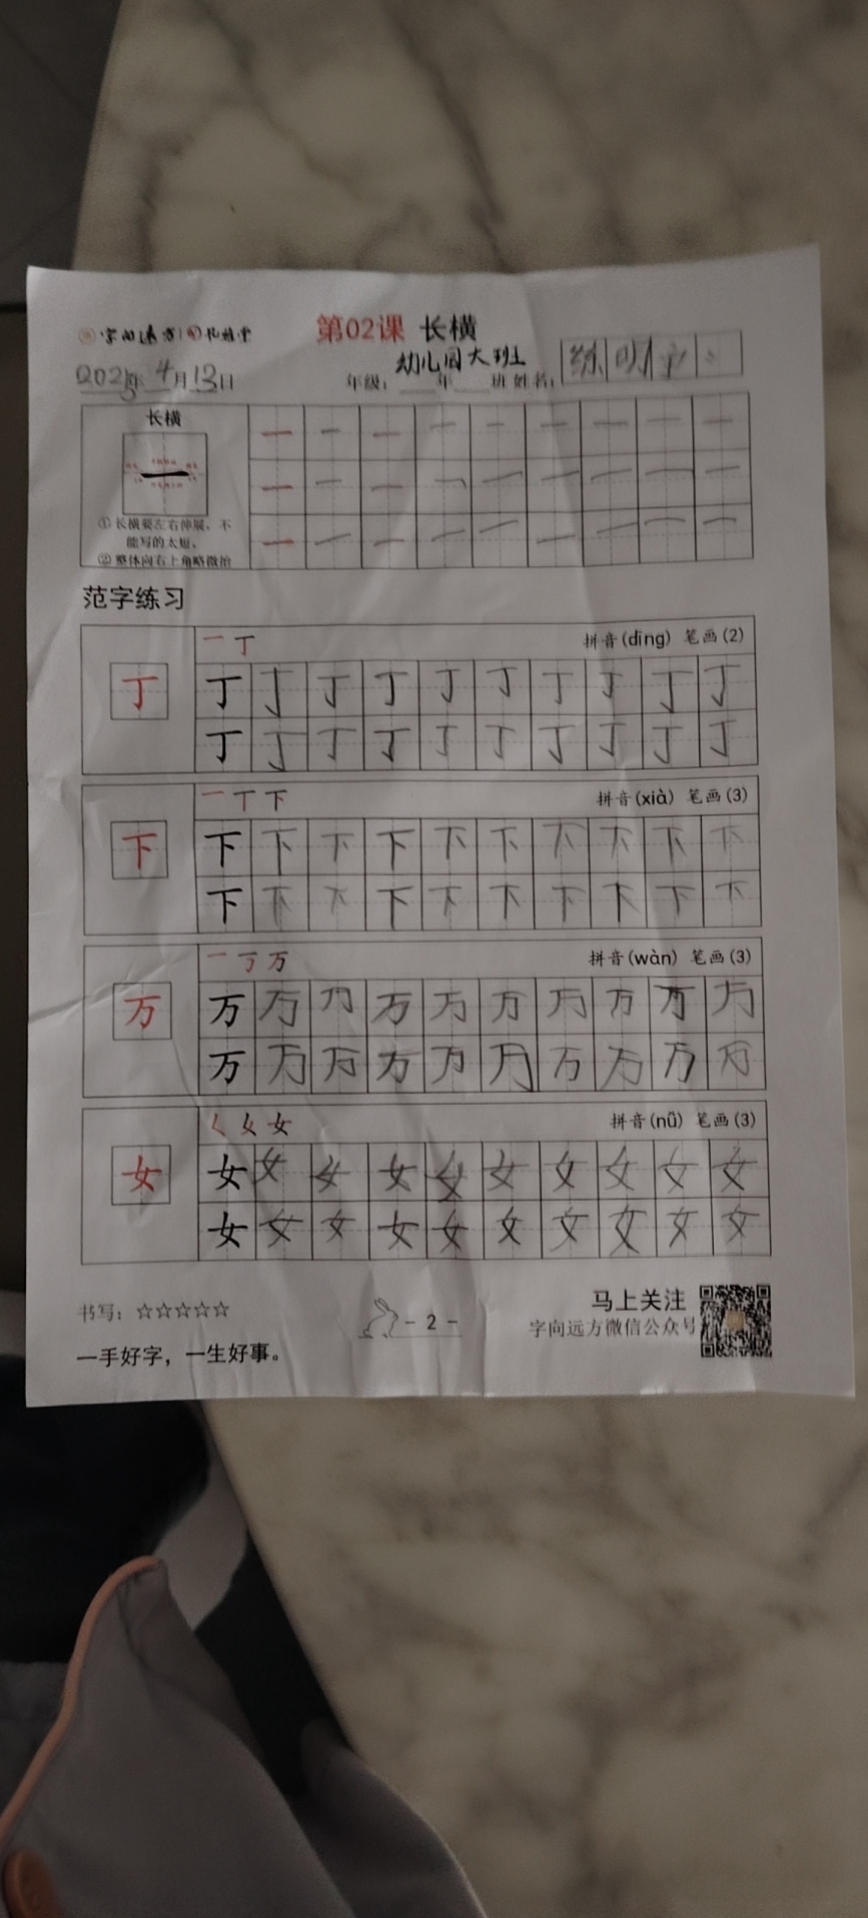 字向远方
第02课 长横
幼儿园大班
2025年4月13日 年级：____年____班 姓名：
长横
一 一 一 一 一 一 一 一 一
一 一 一 一 一 一 一 一 一
一 一 一 一 一 一 一 一 一
①长横要左右伸展，不
能写的太短。
②整体向右上角略微抬
范字练习
一 丁 拼音(dīng) 笔画(2)
丁 丁 丁 丁 丁 丁 丁 丁 丁 丁 丁
丁 丁 丁 丁 丁 丁 丁 丁 丁 丁
一 丅 下 拼音(xià) 笔画(3)
下 下 下 下 下 下 下 下 下 下 下
下 下 下 下 下 下 下 下 下 下
一 丁 万 拼音(wàn) 笔画(3)
万 万 万 万 万 万 万 万 万 万 万
万 万 万 万 万 万 万 万 万 万
女 拼音(nǚ) 笔画(3)
女 女 女 女 女 女 女 女 女 女 女
女 女 女 女 女 女 女 女 女 女
书写：☆☆☆☆☆
- 2 -
马上关注
字向远方微信公众号
一手好字，一生好事。